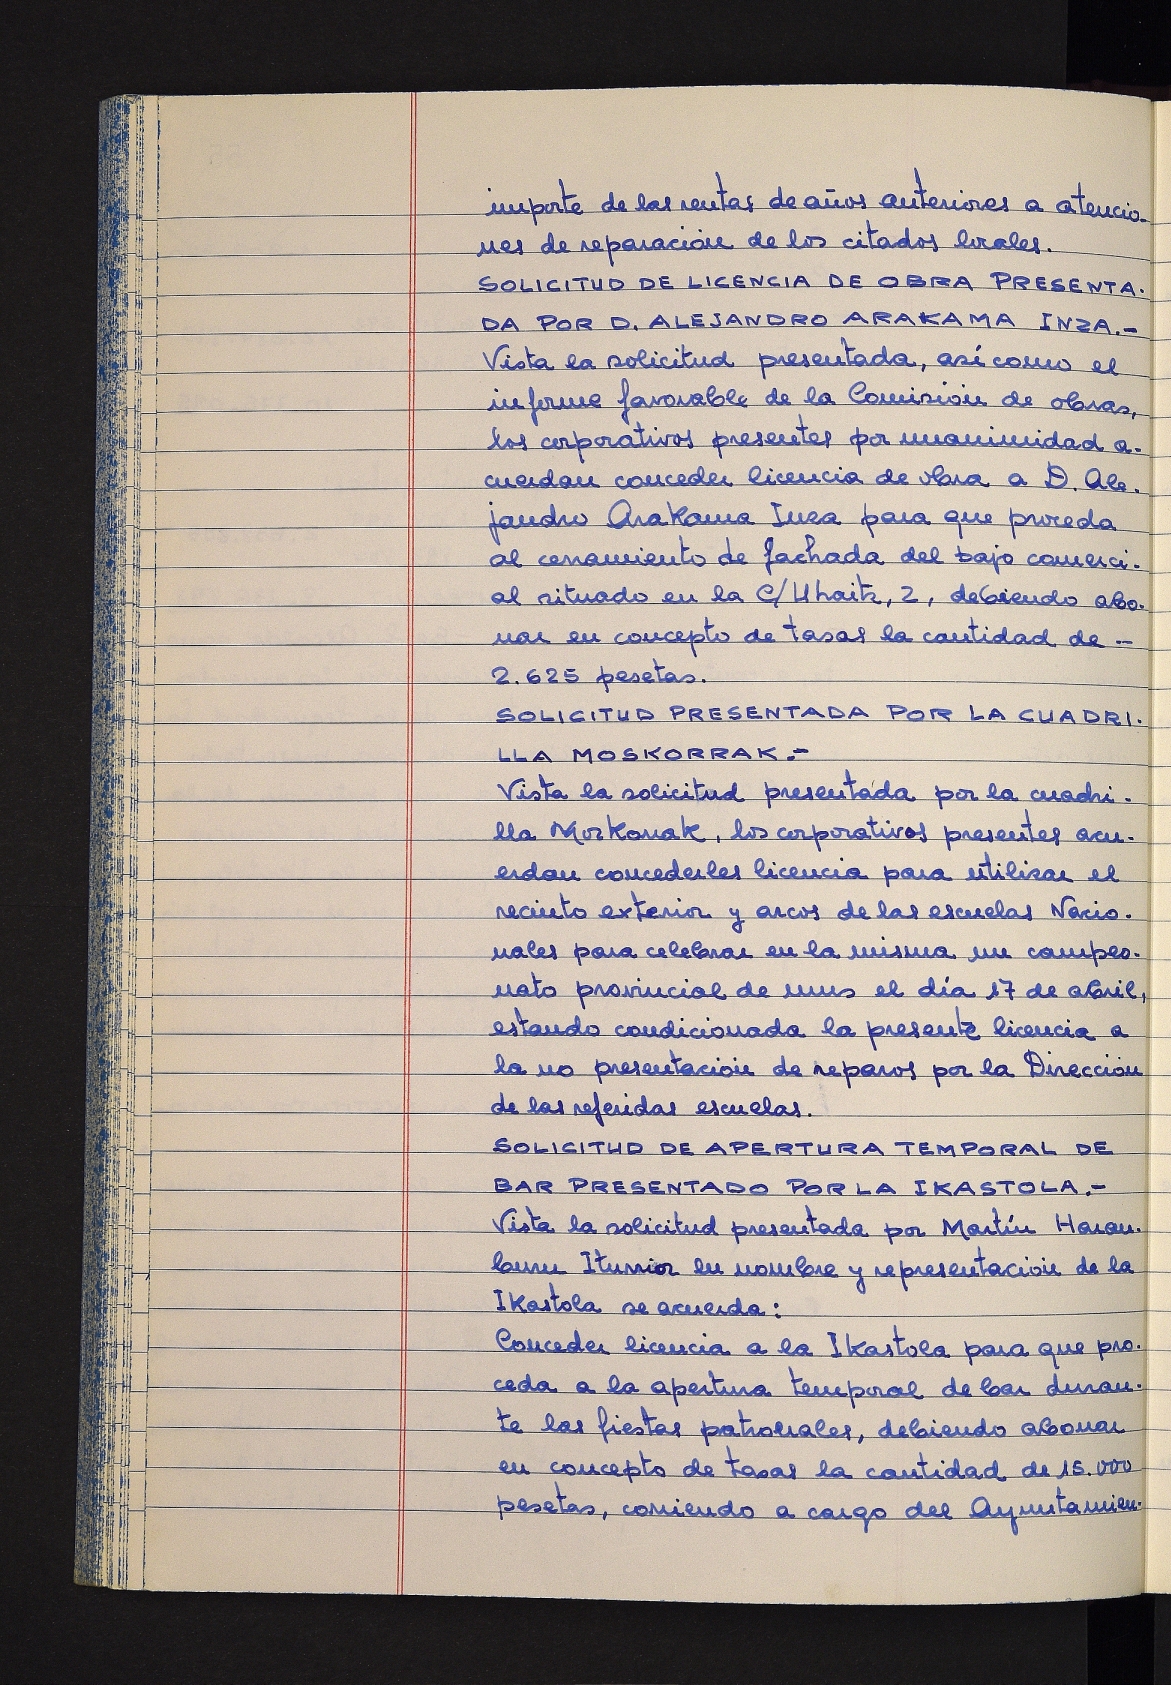 importe de las rentas de años anteriores a atencio-
nes de reparación de los citados locales.
SOLICITUD DE LICENCIA DE OBRA PRESENTA-
DA POR D. ALEJANDRO ARAKAMA INZA.-
Vista la solicitud presentada, así como el
informe favorable de la Comisión de obras,
los corporativos presentes por unanimidad a-
cuerdan conceder licencia de obra a D. Ale-
jandro Arakama Inza para que proceda
al cerramiento de fachada del bajo comerci-
al situado en la C/Uhaitz, 2, debiendo abo-
nar en concepto de tasas la cantidad de -
2.625 pesetas.
SOLICITUD PRESENTADA POR LA CUADRI-
LLA MOSKORRAK.-
Vista la solicitud presentada por la cuadri-
lla Moskorrak, los corporativos presentes acu-
erdan concederles licencia para utilizar el
recinto exterior y arcos de las escuelas Nacio-
nales para celebrar en la misma un campeo-
nato provincial de mus el día 17 de abril,
estando condicionada la presente licencia a
la no presentación de reparos por la Dirección
de las referidas escuelas.
SOLICITUD DE APERTURA TEMPORAL DE
BAR PRESENTADO POR LA IKASTOLA.-
Vista la solicitud presentada por Martín Haran-
buru Iturrior en nombre y representación de la
Ikastola se acuerda:
Conceder licencia a la Ikastola para que pro-
ceda a la apertura temporal de bar duran-
te las fiestas patronales, debiendo abonar
en concepto de tasas la cantidad de 15.000
pesetas, corriendo a cargo del Ayuntamien-